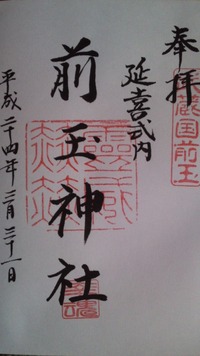 奉拝
武蔵国前玉
延喜式内
前玉神社
平成二十四年三月三十一日